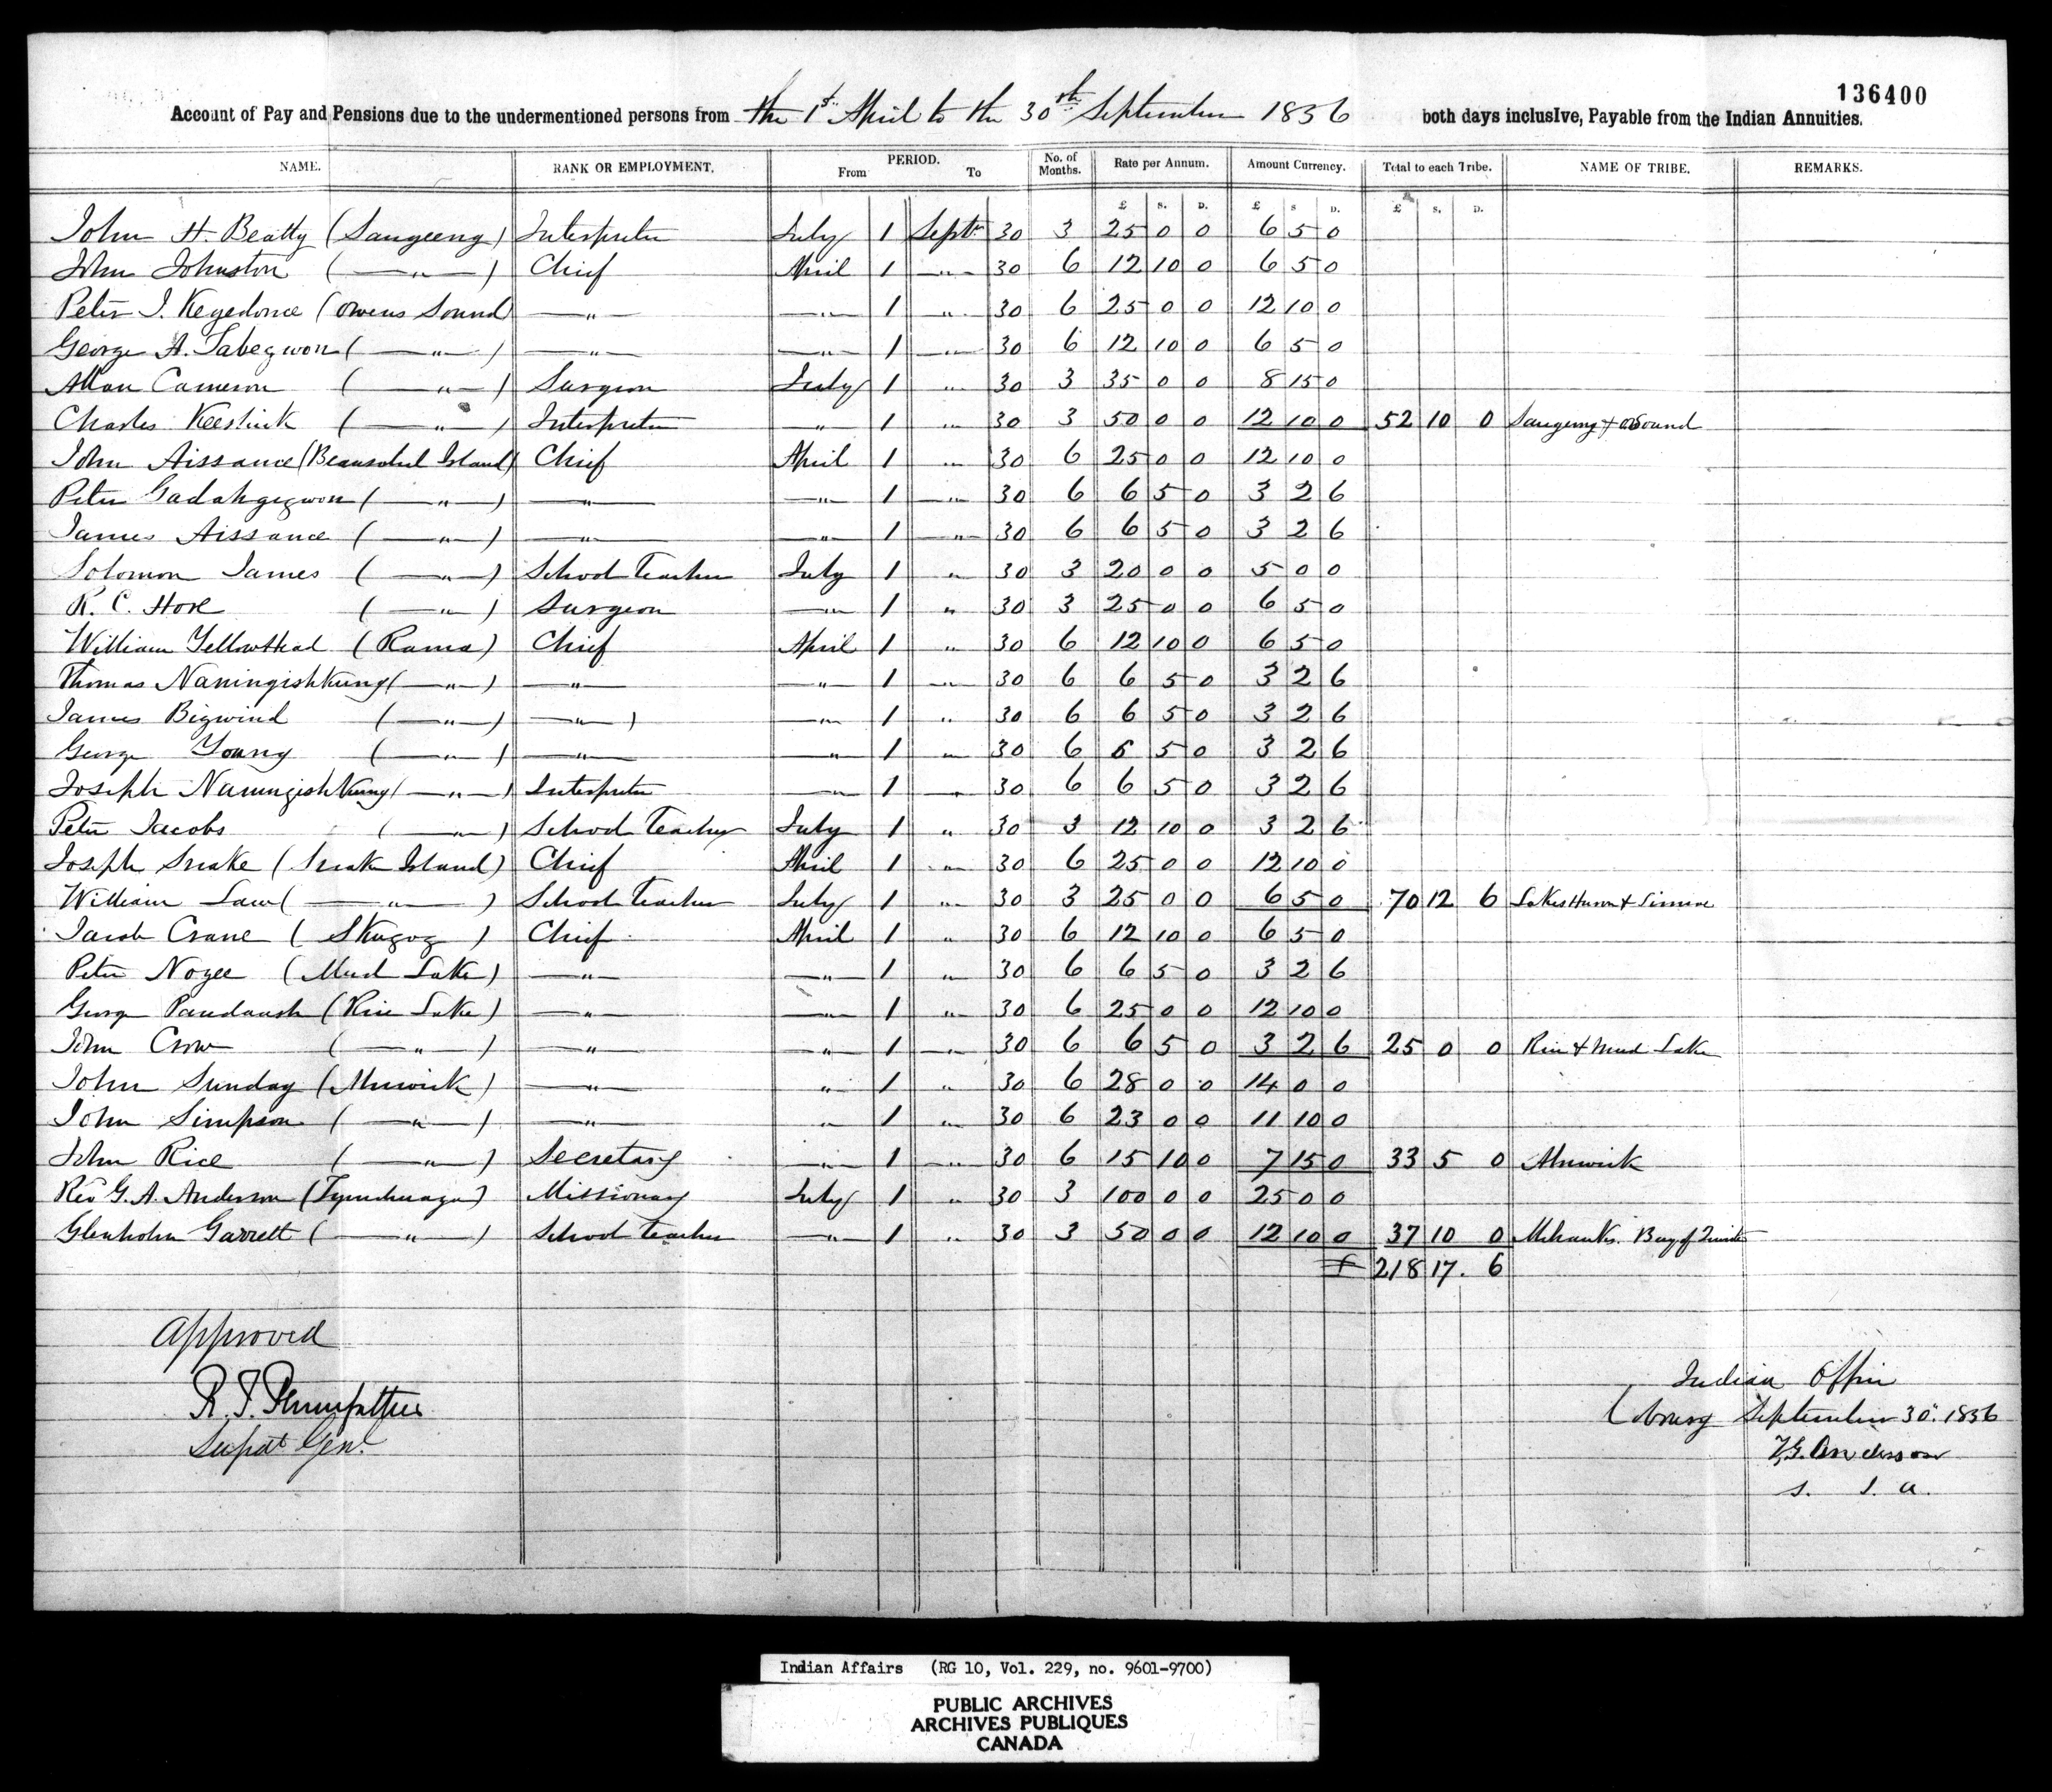 136400
Account of Pay and Pensions due to the undermentioned persons from the 1st April to the 30th September 1856 both days inclusive, Payable from the Indian Annuities.
NAME. RANK OR EMPLOYMENT. PERIOD. From To No. of Months. Rate per Annum. Amount Currency. Total to each Tribe. NAME OF TRIBE. REMARKS.
£ s. D. £ s D. £ s. D.
John H. Beatty (Saugeeng) Interpreter July 1 Septr 30 3 25 0 0 6 5 0
John Johnston ( — " — ) Chief April 1 — " — 30 6 12 10 0 6 5 0
Peter J. Kegedonce (Owens Sound) — " — — " — 1 " 30 6 25 0 0 12 10 0
George A. Tabegwon ( — " — ) — " — — " — 1 — " — 30 6 12 10 0 6 5 0
Allan Cameron ( — " — ) Surgeon July 1 " 30 3 35 0 0 8 15 0
Charles Keeshick ( — " — ) Interpreter — " — 1 " 30 3 50 0 0 12 10 0 52 10 0 Saugeeng & O Sound
John Aissance (Beausoleil Island) Chief April 1 " 30 6 25 0 0 12 10 0
Peter Gadahgegwon ( — " — ) — " — — " — 1 — " — 30 6 6 5 0 3 2 6
James Aissance ( — " — ) — " — — " — 1 — " — 30 6 6 5 0 3 2 6
Solomon James ( — " — ) School Teacher July 1 " 30 3 20 0 0 5 0 0
R. C. Hore ( — " — ) Surgeon — " — 1 " 30 3 25 0 0 6 5 0
William Yellowhead (Rama) Chief April 1 " 30 6 12 10 0 6 5 0
Thomas Naningishkung ( — " — ) — " — — " — 1 — " — 30 6 6 5 0 3 2 6
James Bigwind ( — " — ) — " — ) — " — 1 " 30 6 6 5 0 3 2 6
George Young ( — " — ) — " — — " — 1 " 30 6 6 5 0 3 2 6
Joseph Naningishkung ( — " — ) Interpreter — " — 1 " 30 6 6 5 0 3 2 6
Peter Jacobs ( — " — ) School Teacher July 1 " 30 3 12 10 0 3 2 6
Joseph Snake (Snake Island) Chief April 1 " 30 6 25 0 0 12 10 0
William Law ( — " — ) School Teacher July 1 " 30 3 25 0 0 6 5 0 70 12 6 Lakes Huron & Simcoe
Jacob Crane ( Skugog ) Chief April 1 " 30 6 12 10 0 6 5 0
Peter Nogee (Mud Lake) — " — — " — 1 " 30 6 6 5 0 3 2 6
George Paudaush (Rice Lake) — " — — " — 1 " 30 6 25 0 0 12 10 0
John Crow ( — " — ) — " — — " — 1 — " — 30 6 6 5 0 3 2 6 25 0 0 Rice & Mud Lake
John Sunday (Alnwick) — " — " 1 " 30 6 28 0 0 14 0 0
John Simpson ( — " — ) — " — " 1 " 30 6 23 0 0 11 10 0
John Rice ( — " — ) Secretary — " — 1 — " — 30 6 15 10 0 7 15 0 33 5 0 Alnwick
Rev G. A. Anderson (Tyendinaga) Missionary July 1 " 30 3 100 0 0 25 0 0
Glenholm Garrett ( — " — ) School Teacher — " — 1 " 30 3 50 0 0 12 10 0 37 10 0 Mohawks. Bay of Quinte
£ 218 17. 6
Approved
R. T. Pennefather
Supdt Genl
Indian Office
Cobourg September 30. 1856
T.G. Anderson
S. I. A.
Indian Affairs (RG 10, Vol. 229, no. 9601-9700)
PUBLIC ARCHIVES
ARCHIVES PUBLIQUES
CANADA